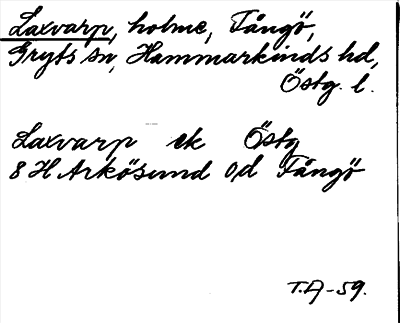 Laxvarp, holme, Fångö,
Gryts sn, Hammarkinds hd,
Östg. l.
Laxvarp ek Östg
8 H Arkösund 0,d Fångö
T.A-59.